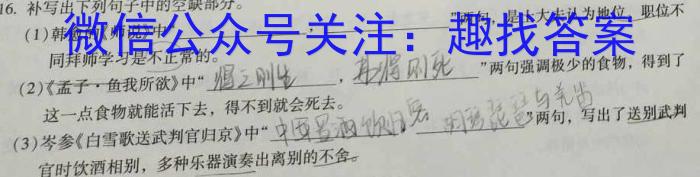 16. 补写出下列句子中的空缺部分。
(1)韩愈《师说》中“ ， ”两句，是士大夫认为地位、职位不
同拜师学习是不正常的。
微信公众号关注：趣找答案
(2)《孟子·鱼我所欲》中“得之则生，弗得则死”两句强调极少的食物，得到了
这一点食物就能活下去，得不到就会死去。
(3)岑参《白雪歌送武判官归京》中“中军置酒饮归客 胡琴琵琶与羌笛”两句，写出了送别武判
官时饮酒相别，多种乐器演奏出离别的不舍。